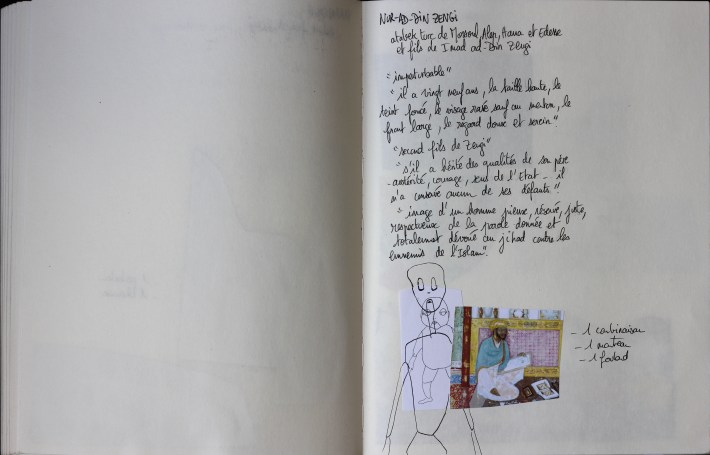 NUR-AD-DIN ZENGI
atabek turc de Mossoul, Alep, Hama et Edesse
et fils de Imad ad-Din Zengi
"imperturbable"
"il a vingt neuf ans, la taille haute, le
teint foncé, le visage rasé sauf au menton, le
front large, le regard doux et serein"
"second fils de Zengi"
"s'il a hérité des qualités de son père
- austérité, courage, sens de l'Etat - il
n'a conservé aucun de ses défauts"
"image d'un homme pieux, réservé, juste,
respectueux de la parole donnée et
totalement dévoué au jihad contre les
ennemis de l'Islam".
- 1 combinaison
- 1 manteau
- 1